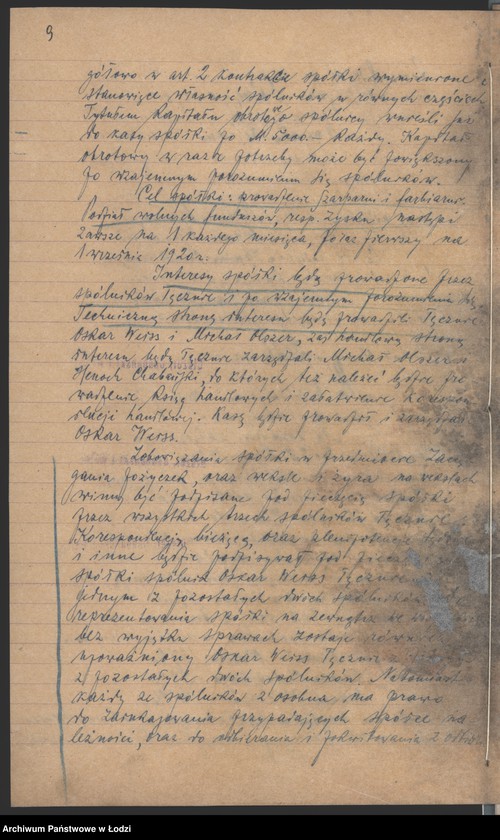 9
gółowo w art. 2 kontraktu spółki wymienione
stanowiące własność spólników w równych częściach
Tytułem Kapitału obrotowego spólnicy wnieśli
do kasy spółki po M. 5000.– Każdy. Kapitał
obrotowy w razie potrzeby może być powiększony
po wzajemnym porozumieniu się spólników.
Cel spółki: prowadzenie szarparni i farbiarni.
Podział wolnych funduszów, resp. zysku nastąpi
zawsze na 1 każdego miesiąca, poraz pierwszy na
1 września 1920 r.
Interesy spółki będą prowadzone przez
spólników łącznie i po wzajemnym porozumieniu się
Techniczną stronę interesu będą prowadzili łącznie
Oskar Weiss i Michał Olszer, zaś handlową stroną
interesu będą łącznie zarządzali Michał Olszer i
Henoch Chabański, do których też należeć będzie pro
wadzenie ksiąg handlowych i załatwienie korespon
dencji handlowej. Kasę będzie prowadził i zarządzał
Oskar Weiss.
Zobowiązania spółki w przedmiocie zacią
gania pożyczek, oraz weksle i żyra na wekslach
winny być podpisane pod pieczęcią spółki
przez wszystkich trzech spólników łącznie
Korespondencję bieżącą, oraz plenipotencje
i inne będzie podpisywał pod
spółki spólnik Oskar Weiss łącznie
jednym z pozostałych dwóch spólników
reprezentowania spółki na zewnątrz we
bez wyjątku sprawach zostaje również
upoważniony Oskar Weiss łącznie z
z pozostałych dwóch spólników. Natomiast
każdy ze spólników z osobna ma prawo
do zainkasowania przypadających spółce na
leżności, oraz do odbierania i pokwitowania z odbioru
Archiwum Państwowe w Łodzi